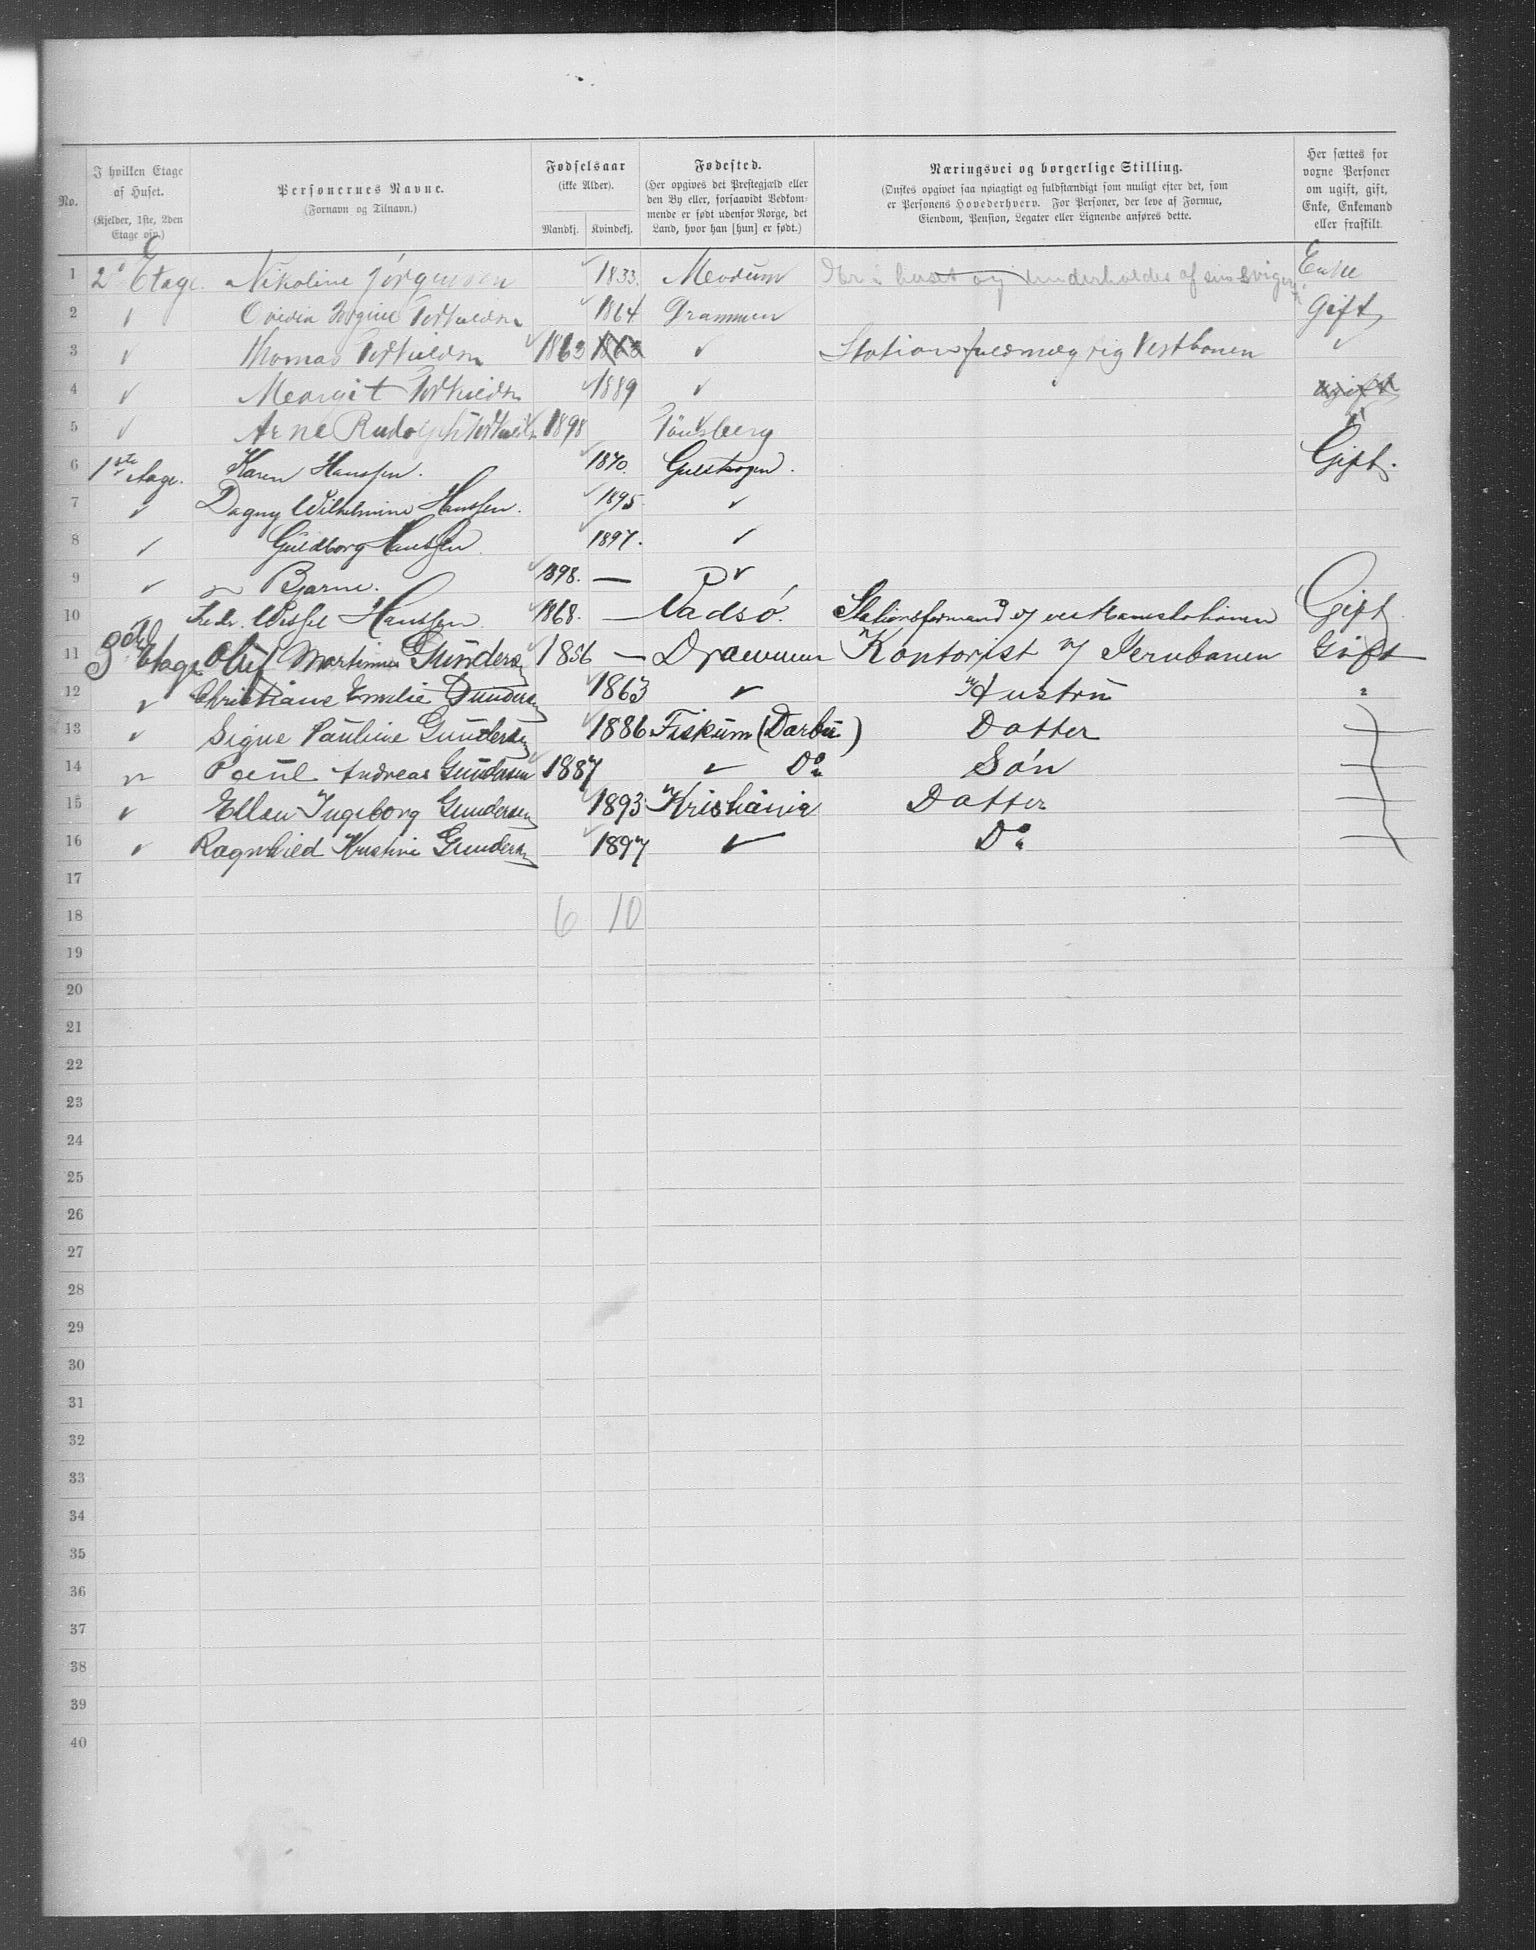 No.
I hvilken Etage af Huset.
(Kjelder, 1ste, 2den Etage osv.)
Personernes Navne.
(Fornavn og Tilnavn.)
Fødselsaar
(ikke Alder).
Mandkj. Kvindekj.
Fødested.
(Her opgives det Prestegjæld eller
den By eller, forsaavidt Vedkom-
mende er født udenfor Norge, det
Land, hvor han [hun] er født.)
Næringsvei og borgerlige Stilling.
(Ønskes opgivet saa nøiagtigt og fuldstændigt som muligt efter det, som
er Personens Hovederhverv. For Personer, der leve af Formue,
Eiendom, Pension, Legater eller Lignende anføres dette.
Her sættes for
voxne Personer
om ugift, gift,
Enke, Enkemand
eller fraskilt.
1 2d Etage. Nikoline Jørgensen 1833. Modum Er i huset og underholdes af sin Enke
2 Jorgine 1864 Drammen Gift
3 Thomas 1863 1863 Vestbanen
4 Margit 1889 ugift
5 Arne Rudolph 1898 Tönsberg
6 1ste Etage. Karen Hanssen. 1870. Gulskogen. Gift.
7 Dagny Wilhelmine Hanssen. 1895.
8 Guldborg Hanssen 1897.
9 Bjarne. 1898. —
10 Fredr. Wessel Hanssen. 1868. — Vadsö. Stationsformand v/ Gift.
11 3die Etage Oluf Martinius Gundersen 1856 — Drammen Kontorist v/ Jernbanen Gift
12 Christiane Emilie Gundersen 1863 Hustrü
13 Signe Pauline Gundersen 1886 Fiskum (Darbü) Datter
14 Poul Andreas Gundersen 1887 Do Sön
15 Ellen Ingeborg Gundersen 1893 Kristiania Datter
16 Ragnhild Kristine Gundersen 1897 Do
17
18 6 10
19
20
21
22
23
24
25
26
27
28
29
30
31
32
33
34
35
36
37
38
39
40